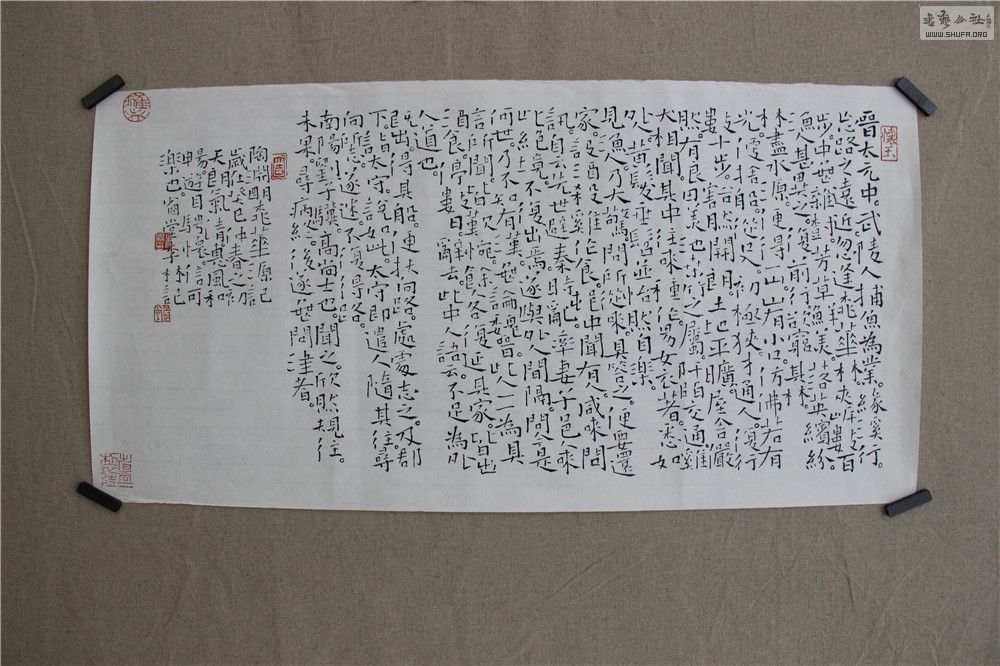 晉太元中。武陵人捕魚為業。緣溪行。
忘路之遠近。忽逢桃花林。夾岸數百
步。中無雜樹。芳草鮮美。落英繽紛。
漁人甚異之。復前行。欲窮其林。
林盡水源。便得一山。山有小口。彷彿若有
光。便捨船。從口入。初極狹。才通人。復行
數十步。豁然開朗。土地平曠。屋舍儼
然。有良田美池桑竹之屬。阡陌交通。雞
犬相聞。其中往來種作。男女衣著。悉如
外人。黃髮垂髫。並怡然自樂。
見漁人。乃大驚。問所從來。具答之。便要還
家。設酒殺雞作食。村中聞有此人。咸來問
訊。自云先世避秦時亂。率妻子邑人來
此絕境。不復出焉。遂與外人間隔。問今是
何世。乃不知有漢。無論魏晉。此人一一為具
言所聞。皆嘆惋。餘人各復延至其家。皆出
酒食。停數日。辭去。此中人語云。不足為外
人道也。
既出。得其船。便扶向路。處處志之。及郡
下。詣太守。說如此。太守即遣人隨其往。尋
向所志。遂迷。不復得路。
南陽劉子驥。高尚士也。聞之。欣然規往。
未果。尋病終。後遂無問津者。
陶淵明桃花源記
歲在癸巳仲春之
天朗氣清惠風和
暢。遊目騁懷。信可
樂也。
書藝公社
WWW.SHUFA.ORG